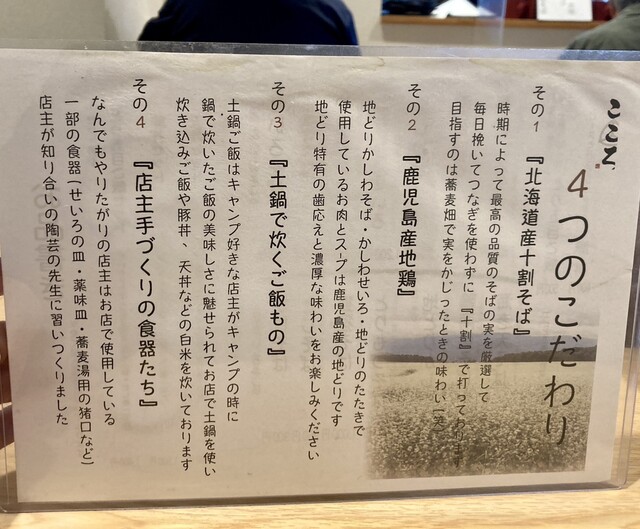 こころ
4つのこだわり
その1 『北海道産十割そば』
時期によって最高の品質のそばの実を厳選して
毎日挽いてつなぎを使わずに 『十割』で打っております
目指すのは蕎麦畑で実をかじったときの味わい(笑)
その2 『鹿児島産地鶏』
地どりかしわそば・かしわせいろ・地どりのたたきで
使用しているお肉とスープは鹿児島産の地どりです
地どり特有の歯応えと濃厚な味わいをお楽しみください
その3 『土鍋で炊くご飯もの』
土鍋ご飯はキャンプ好きな店主がキャンプの時に
鍋で炊いたご飯の美味しさに魅せられてお店で土鍋を使い
炊き込みご飯や豚丼、天丼などの白米を炊いております
その4 『店主手づくりの食器たち』
なんでもやりたがりの店主はお店で使用している
一部の食器(せいろの皿・薬味皿・蕎麦湯用の猪口など)
店主が知り合いの陶芸の先生に習いつくりました